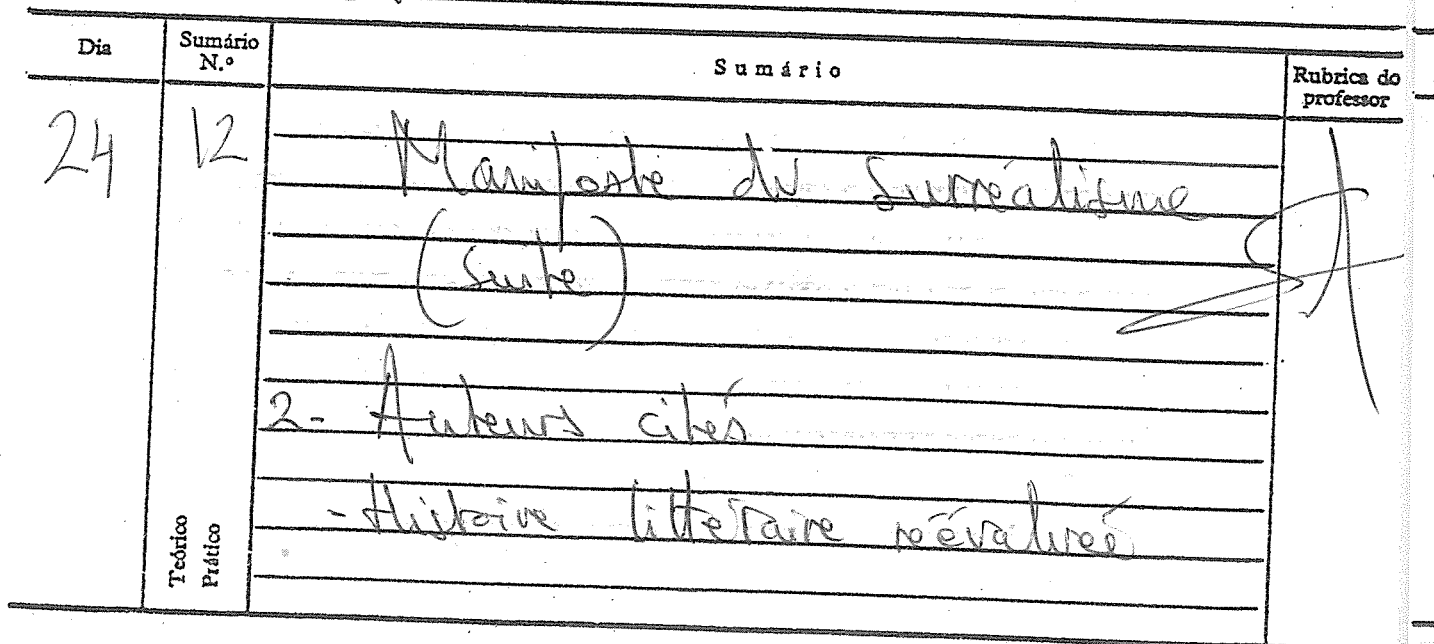 Dia
Sumário N.º
Sumário
Rubrica do professor
24
12
Manifeste du Surréalisme
(Suite)
2- Auteurs cités
- Histoire littéraire réévaluée
Teórico
Prático